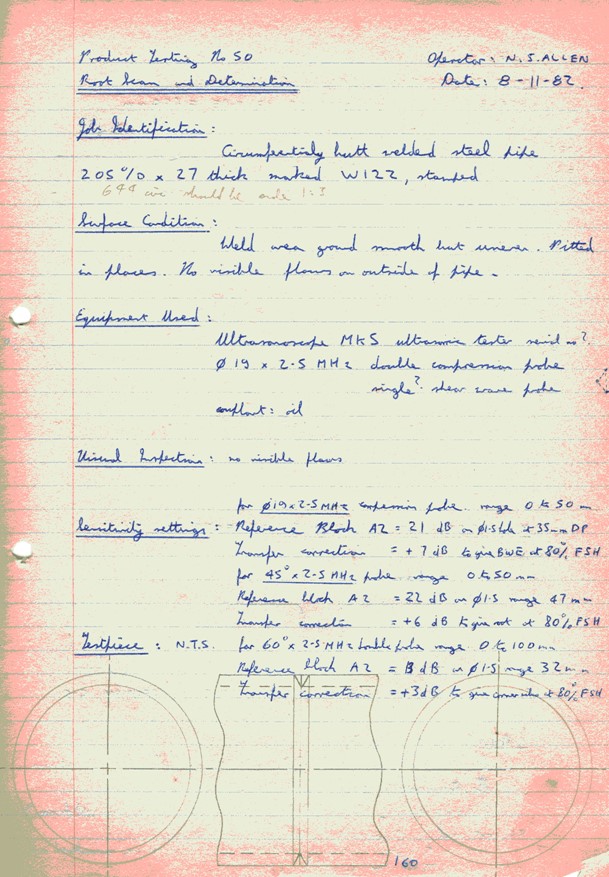 Product Testing No 50
Operator: N.S.ALLEN
Root Scan and Determination
Date: 8-11-82.
Job Identification:
Circumferentialy butt welded steel pipe
205 O/D x 27 thick marked W122, stamped
should be
Surface Condition:
Weld area ground smooth but uneven. Pitted
in places. No visible flaws on outside of pipe.
Equipment Used:
Ultrasonoscope MK5 ultrasonic tester serial no?
Ø 19 x 2.5 MHz double compression probe
single? shear wave probe
couplant: oil
Visual Inspection: no visible flaws
for Ø19x2.5MHz compression probe range 0 to 50 mm
Sensitivity settings: Reference Block A2 = 21 dB on Ø1.5 hole x 35mm DP
Transfer correction = +7 dB to give BWE at 80% FSH
for 45° x 2.5 MHz probe range 0 to 50 mm
Reference block A2 = 22 dB on Ø1.5 range 47 mm
Transfer correction = +6 dB to give root at 80% FSH
Testpiece: N.T.S. for 60° x 2.5 MHz probe range 0 to 100mm
Reference block A2 = dB on Ø1.5 range 32mm
Transfer correction = +3dB to give at 80% FSH
160